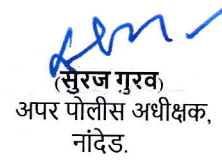 (सुरज गुरव)
अपर पोलीस अधीक्षक,
नांदेड.